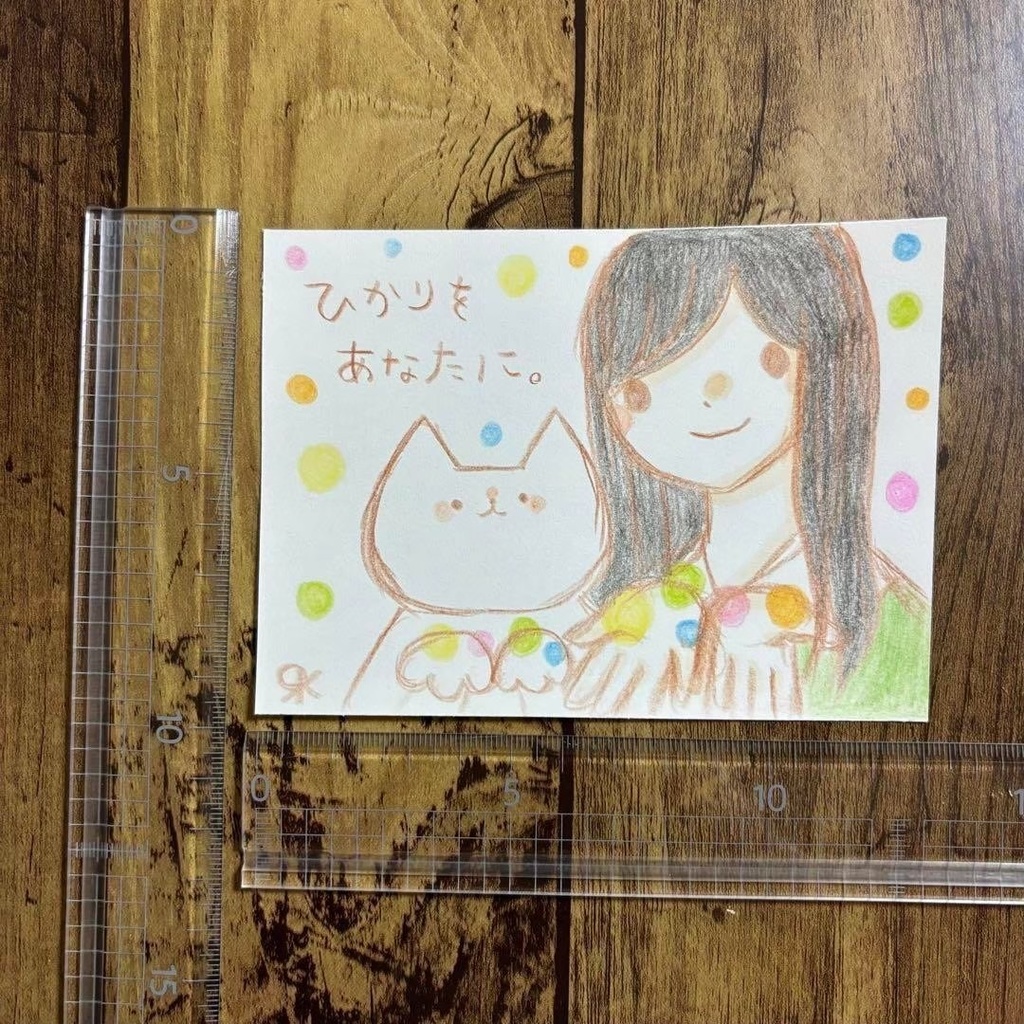 ひかりを
あなたに。
0
5
10
15
0
5
10